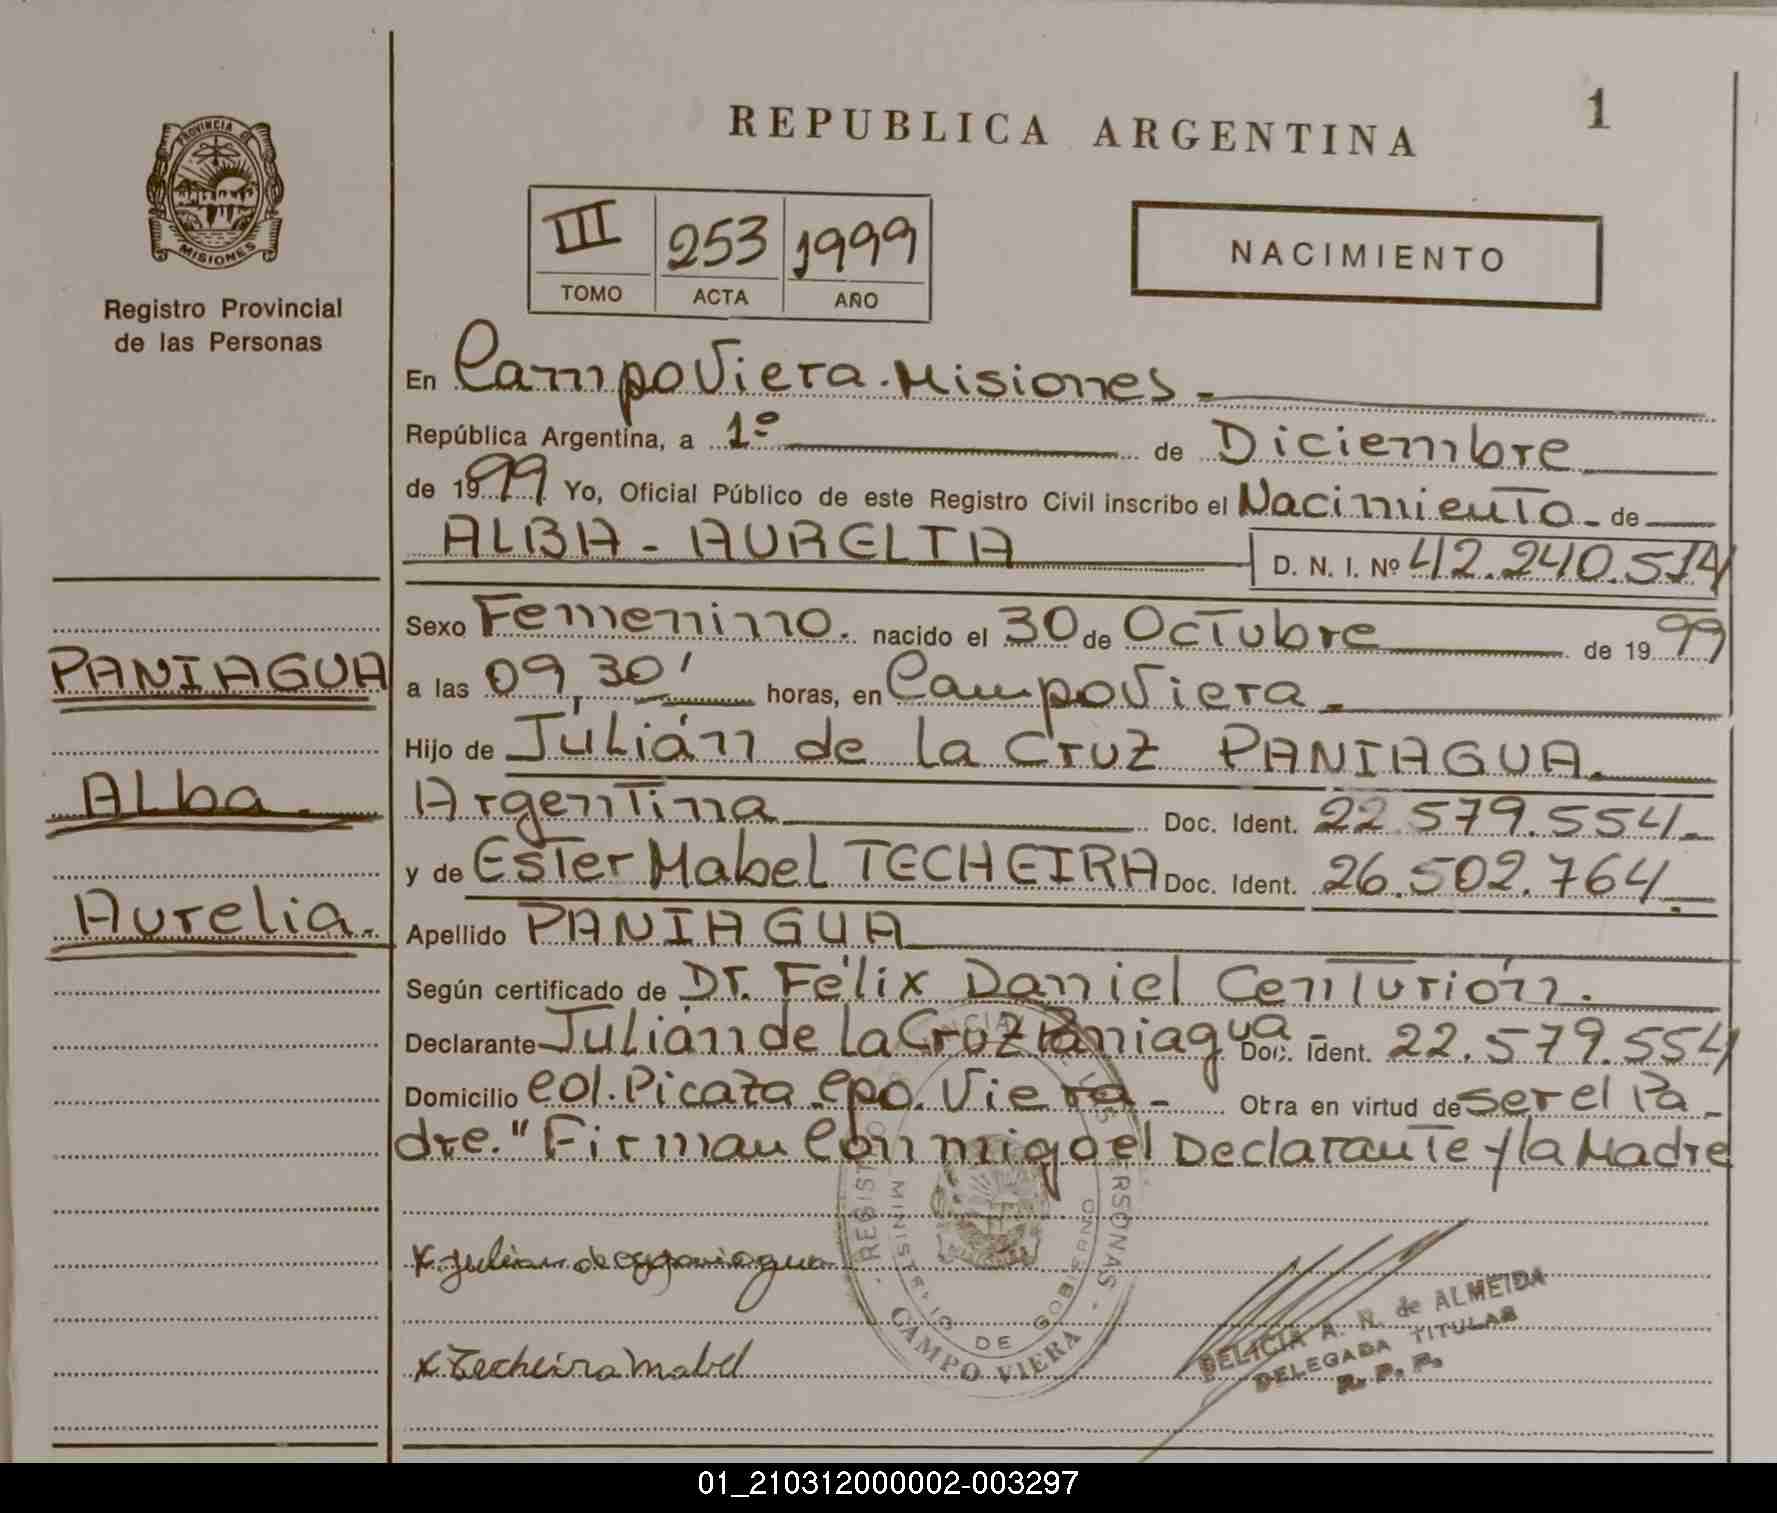 REPUBLICA ARGENTINA
1
PROVINCIA DE
MISIONES
Registro Provincial
de las Personas
III 253 1999
TOMO ACTA AÑO
NACIMIENTO
En Campo Viera. Misiones.
República Argentina, a 1º de Diciembre
de 1999 Yo, Oficial Público de este Registro Civil inscribo el Nacimiento de
ALBA - AURELIA D. N. I. Nº 42.240.514
Sexo Femenino. nacido el 30 de Octubre de 1999
PANIAGUA
a las 09,30' horas, en Campo Viera.
Hijo de Julián de la Cruz PANIAGUA.
Alba.
Argentina Doc. Ident. 22.579.554.
y de Ester Mabel TECHEIRA Doc. Ident. 26.502.764.
Aurelia.
Apellido PANIAGUA
Según certificado de Dr. Félix Daniel Centurión.
Declarante Julián de la Cruz Paniagua - Doc. Ident. 22.579.554
Domicilio Col. Picaza. Cpo. Viera - Obra en virtud de ser el Pa-
dre." Firman Conmigo el Declarante y la Madre
REGISTRO PERSONAS
MINISTERIO DE GOBIERNO
CAMPO VIERA
x Techeira Mabel
DELICIA A. N. de ALMEIDA
DELEGADA TITULAR
R. P. P.
01_210312000002-003297